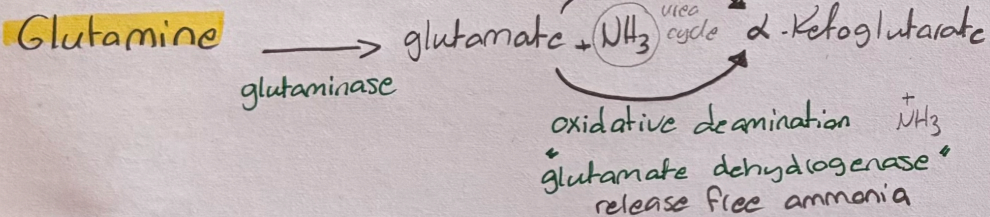 Glutamine → glutamate + NH3 urea cycle α-Ketoglutarate
glutaminase
oxidative deamination + NH3
"glutamate dehydrogenase"
release free ammonia